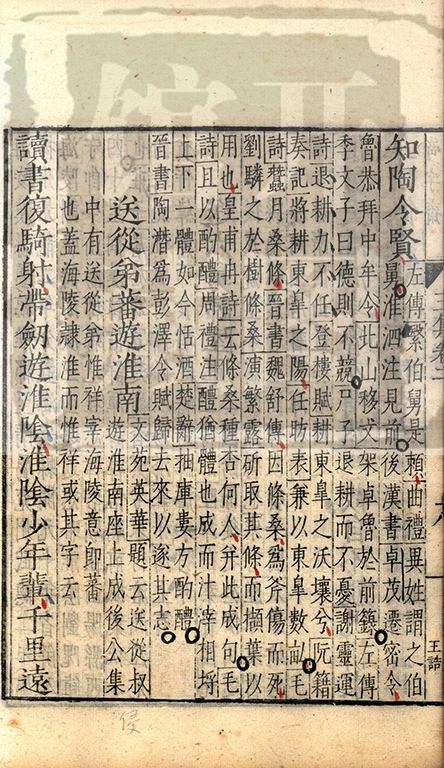 知陶令賢
左傳繄伯舅是賴曲禮異姓謂之伯
舅淮泗注見前後漢書卓茂遷密令
魯恭拜中牟令北山移文架卓魯於前籙左傳
季文子曰德則不競尸子退耕而不憂謝靈運
詩退耕力不任登樓賦耕東臯之沃壤兮阮籍
奏記將耕東臯之陽任昉表兼以東臯數畝毛
詩蠶月桑條晉書魏舒傳因條桑爲斧傷而死
劉驎之於樹條桑演繁露斫取其條而擷葉以
用也皇甫冉詩云條桑種杏何人幷此成句毛
詩且以酌醴周禮注醴猶體也成而汁滓相將
上下一體如今恬酒楚辭抽庫婁方酌醴
晉書陶潛爲彭澤令賦歸去來以遂其志
送從弟蕃遊淮南
文苑英華題云送從叔
遊淮南座上成後公集
中有送從弟惟祥宰海陵意即蕃
也蓋海陵隷淮而惟祥或其字云
讀書復騎射帶劍遊淮陰淮陰少年輩千里遠
王誥
侵